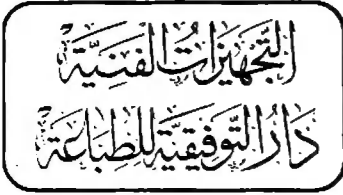 التَّجْهِيزَاتُ الفَنِّيَّة
دَارُ التَّوْفِيقِيَّةِ لِلطِّبَاعَةِ